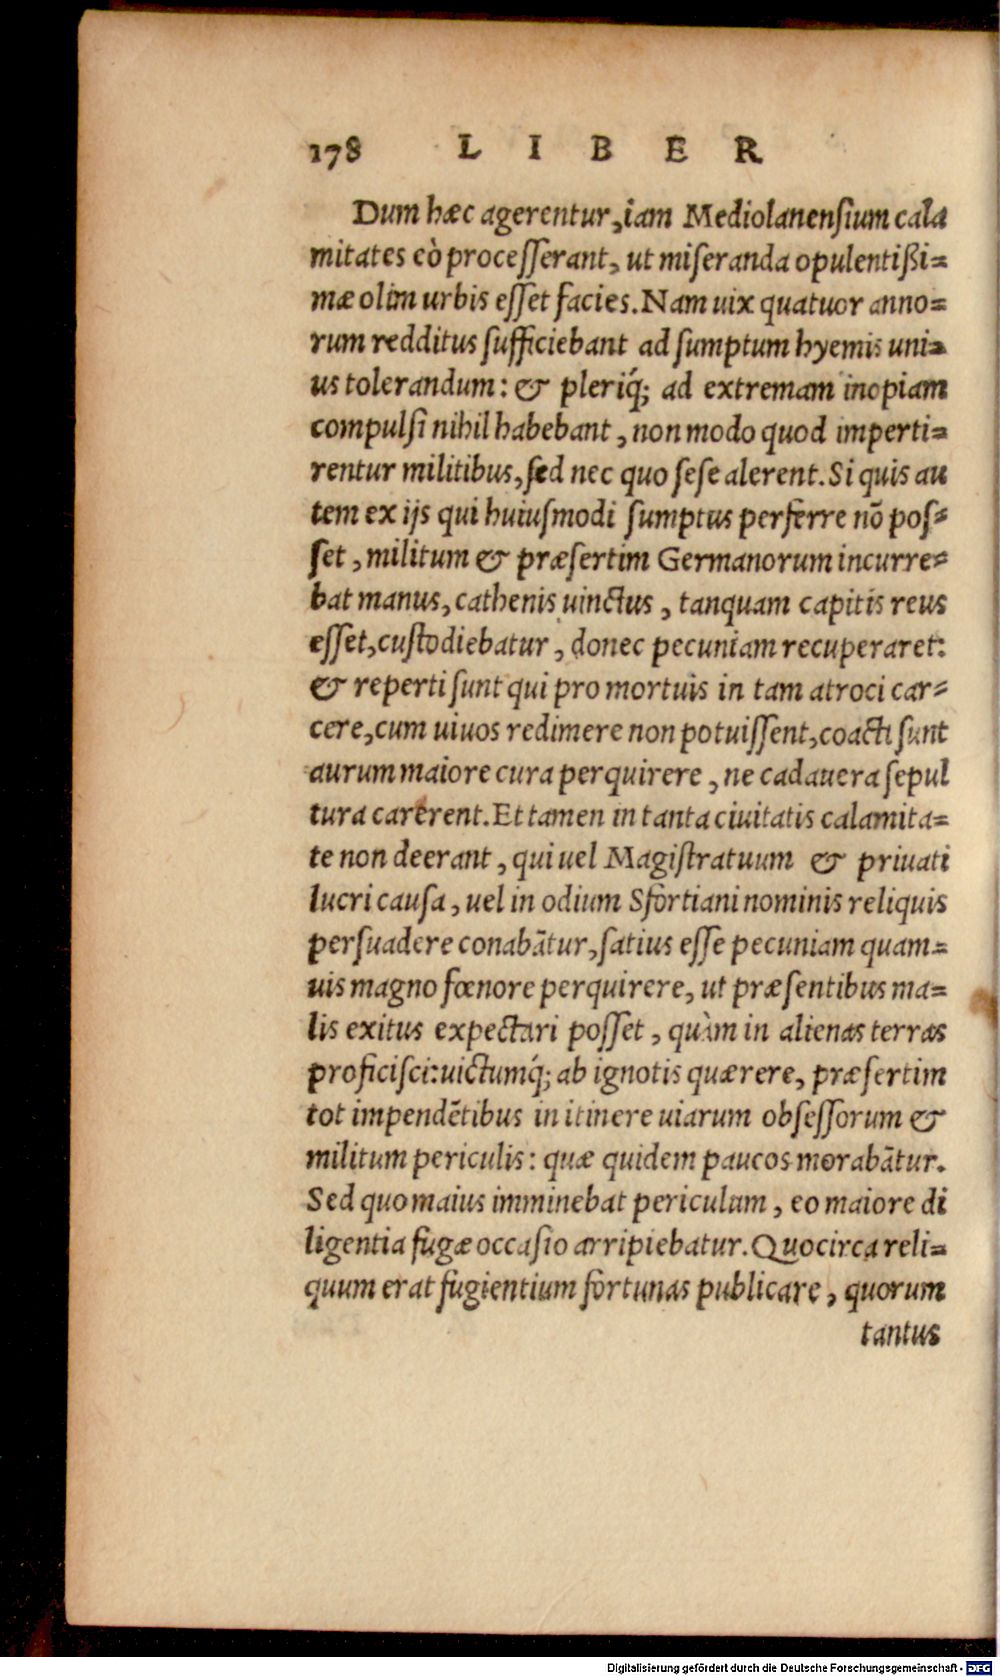 178 LIBER
Dum hæc agerentur, iam Mediolanensium cala
mitates eò processerant, ut miseranda opulentißi=
mæ olim urbis esset facies. Nam uix quatuor anno=
rum redditus sufficiebant ad sumptum hyemis uni=
us tolerandum: & pleriq́; ad extremam inopiam
compulsi nihil habebant, non modo quod imperti=
rentur militibus, sed nec quo sese alerent. Si quis au
tem ex ijs qui huiusmodi sumptus perferre nõ pos=
set, militum & præsertim Germanorum incurre=
bat manus, cathenis uinctus, tanquam capitis reus
esset, custodiebatur, donec pecuniam recuperaret:
& reperti sunt qui pro mortuis in tam atroci car=
cere, cum uiuos redimere non potuissent, coacti sunt
aurum maiore cura perquirere, ne cadauera sepul
tura carerent. Et tamen in tanta ciuitatis calamita=
te non deerant, qui uel Magistratuum & priuati
lucri causa, uel in odium Sfortiani nominis reliquis
persuadere conabãtur, satius esse pecuniam quam=
uis magno fœnore perquirere, ut præsentibus ma=
lis exitus expectari posset, quàm in alienas terras
proficisci: uictumq́; ab ignotis quærere, præsertim
tot impendẽtibus in itinere uiarum obsessorum &
militum periculis: quæ quidem paucos morabãtur.
Sed quo maius imminebat periculum, eo maiore di
ligentia fugæ occasio arripiebatur. Quocirca reli=
quum erat fugientium fortunas publicare, quorum
tantus
Digitalisierung gefördert durch die Deutsche Forschungsgemeinschaft - DFG